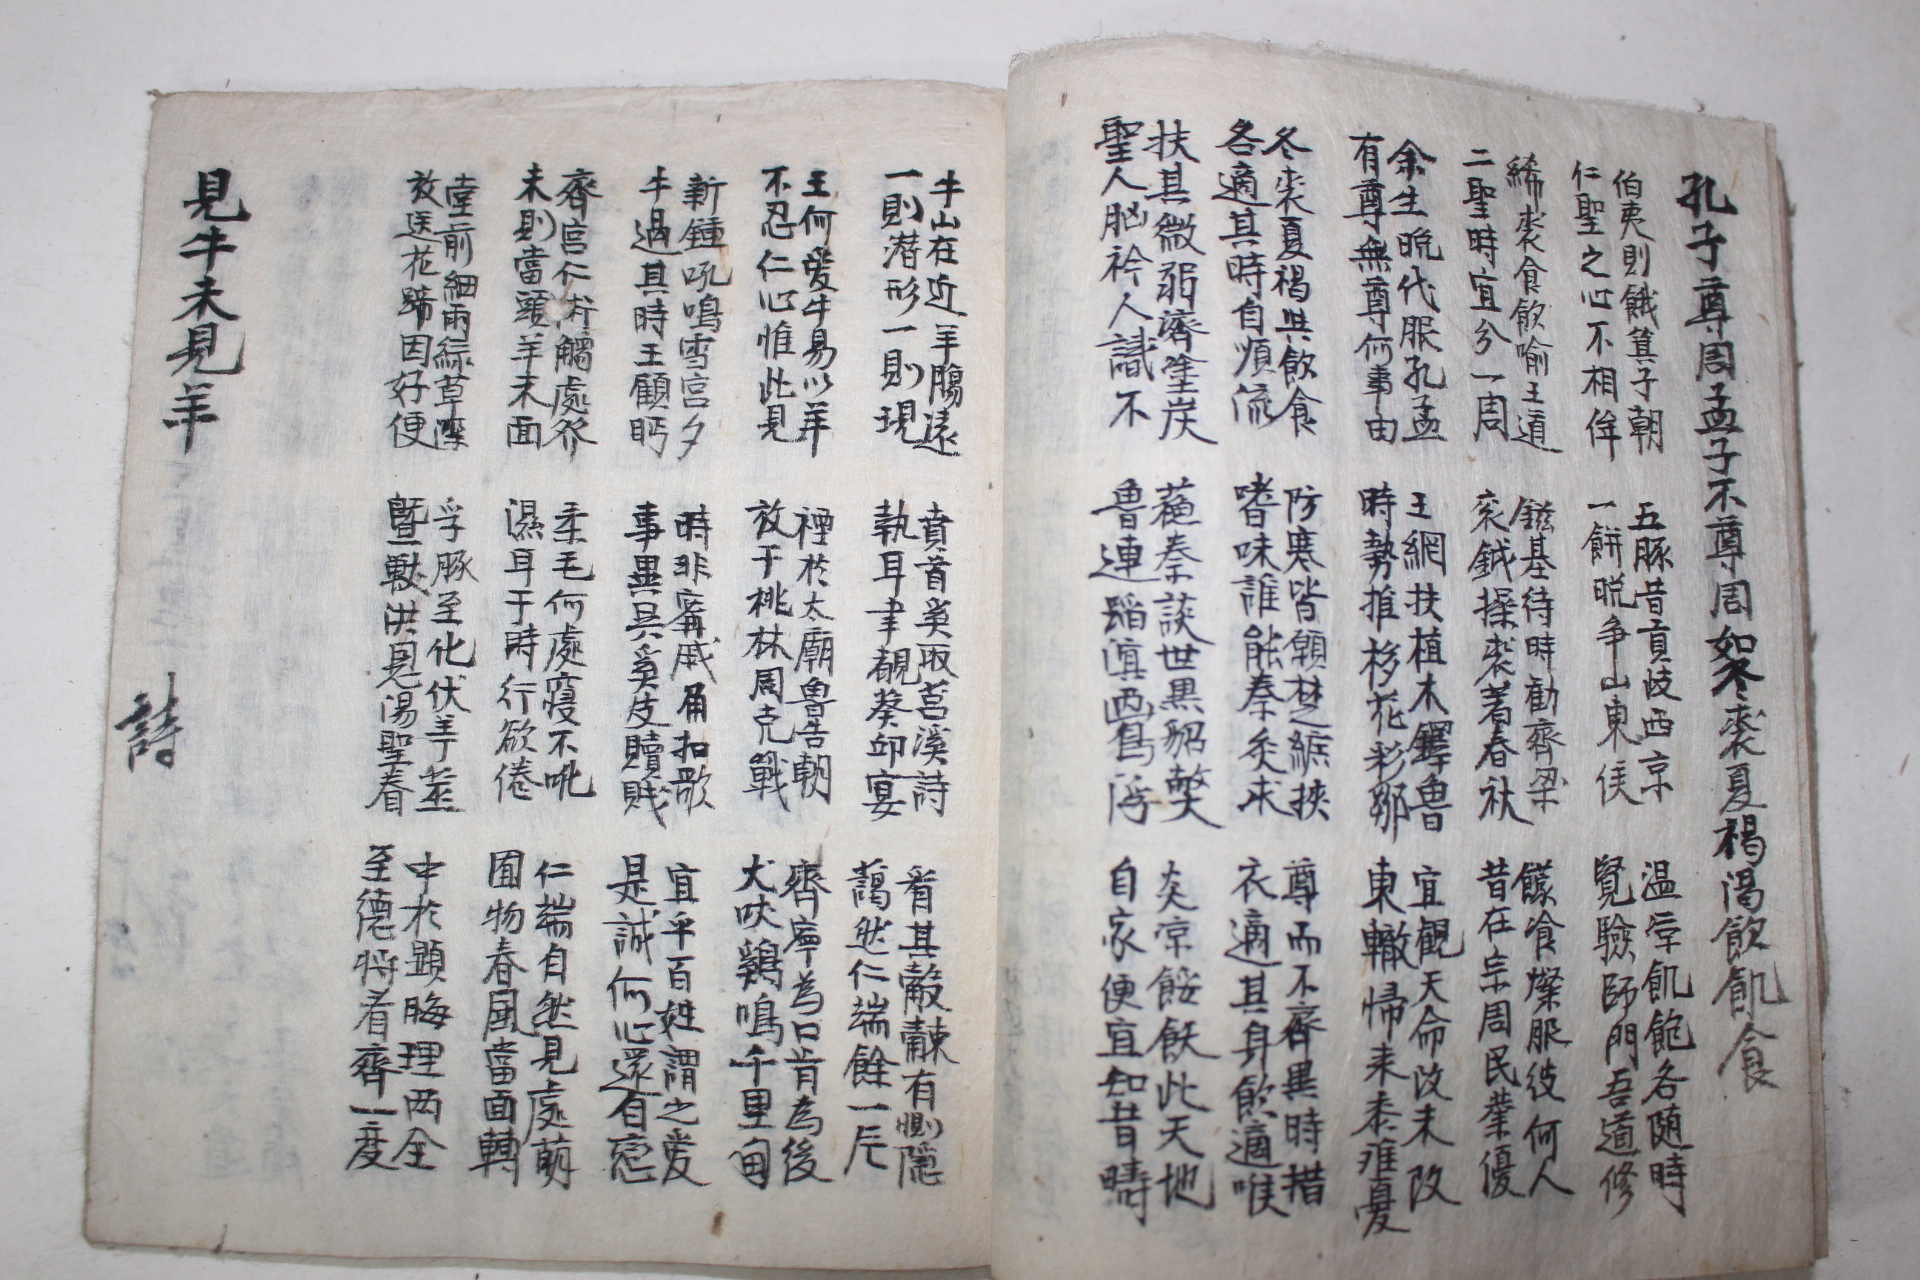 孔子尊周孟子不尊周如冬裘夏褐渴飮飢食
伯夷則餓箕子朝
仁聖之心不相侔
五豚昔貢岐西京
一餠晩爭山東侯
温凉飢飽各随時
賢驗師門吾道修
絺裘食飮喻王道
二聖時宜兮一周
鎡基待時勸齊梁
衮鉞操裘著春秋
饛飡燦服彼何人
昔在宗周民業優
余生晩代服孔孟
有尊無尊何事由
王網扶植木鐸魯
時勢推移花彩鄒
宜觀天命改未改
東轍帰来黍離憂
冬裘夏褐共飮食
各適其時自順流
防寒皆願楚縱挾
嗜味誰能秦炙求
尊而不齊異時措
衣適其身飮適喉
扶其微弱濟塗炭
聖人胸衿人識不
蘓秦談世黒貂弊
魯連蹈溟西鳥浮
炎凉餒飫此天地
自家便宜知昔疇
牛山在近羊膓遠
一則潜形一則現
賁首奚取苕溪詩
執耳聿覩葵邱宴
看其觳觫有惻隠
藹然仁端餘一尺
王何愛牛易以羊
不忍仁心惟此見
禋於太廟魯告朝
放于桃林周克戰
齊寧為口肯為後
犬吠鷄鳴千里甸
新鍾吼鳴雪宮夕
牛過其時王顧眄
時非寗戚角扣歌
事異呉奚皮贖賤
宜乎百姓謂之愛
是誠何心還自恋
齊宮仁術觸處發
未則當頭羊未面
柔毛何處寝不吪
濕耳于時行欲倦
仁端自然見處萌
囿物春風當面轉
堂前細雨緑草濃
放送花蹄因好便
孚豚至化伏羊並
曁獣洪恩湯聖眷
中於顕晦理两全
至德將看齊一度
見牛未見羊
詩